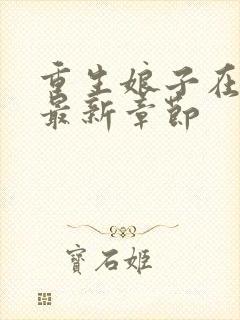 重生娘子在
最新章节
寶石姬